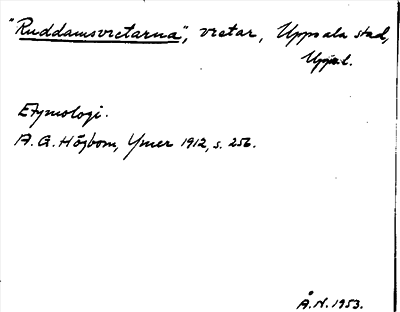 "Ruddamsvretarna", vretar, Uppsala stad,
Uppl.
Etymologi.
A. G. Högbom, Ymer 1912, s. 256.
Å. N. 1953.